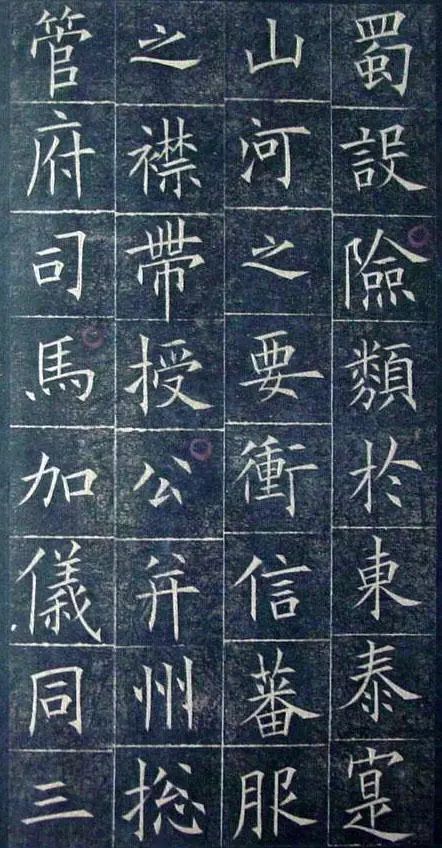 蜀設險類於東泰寔
山河之要衝信蕃服
之襟帶授公并州揔
管府司馬加儀同三